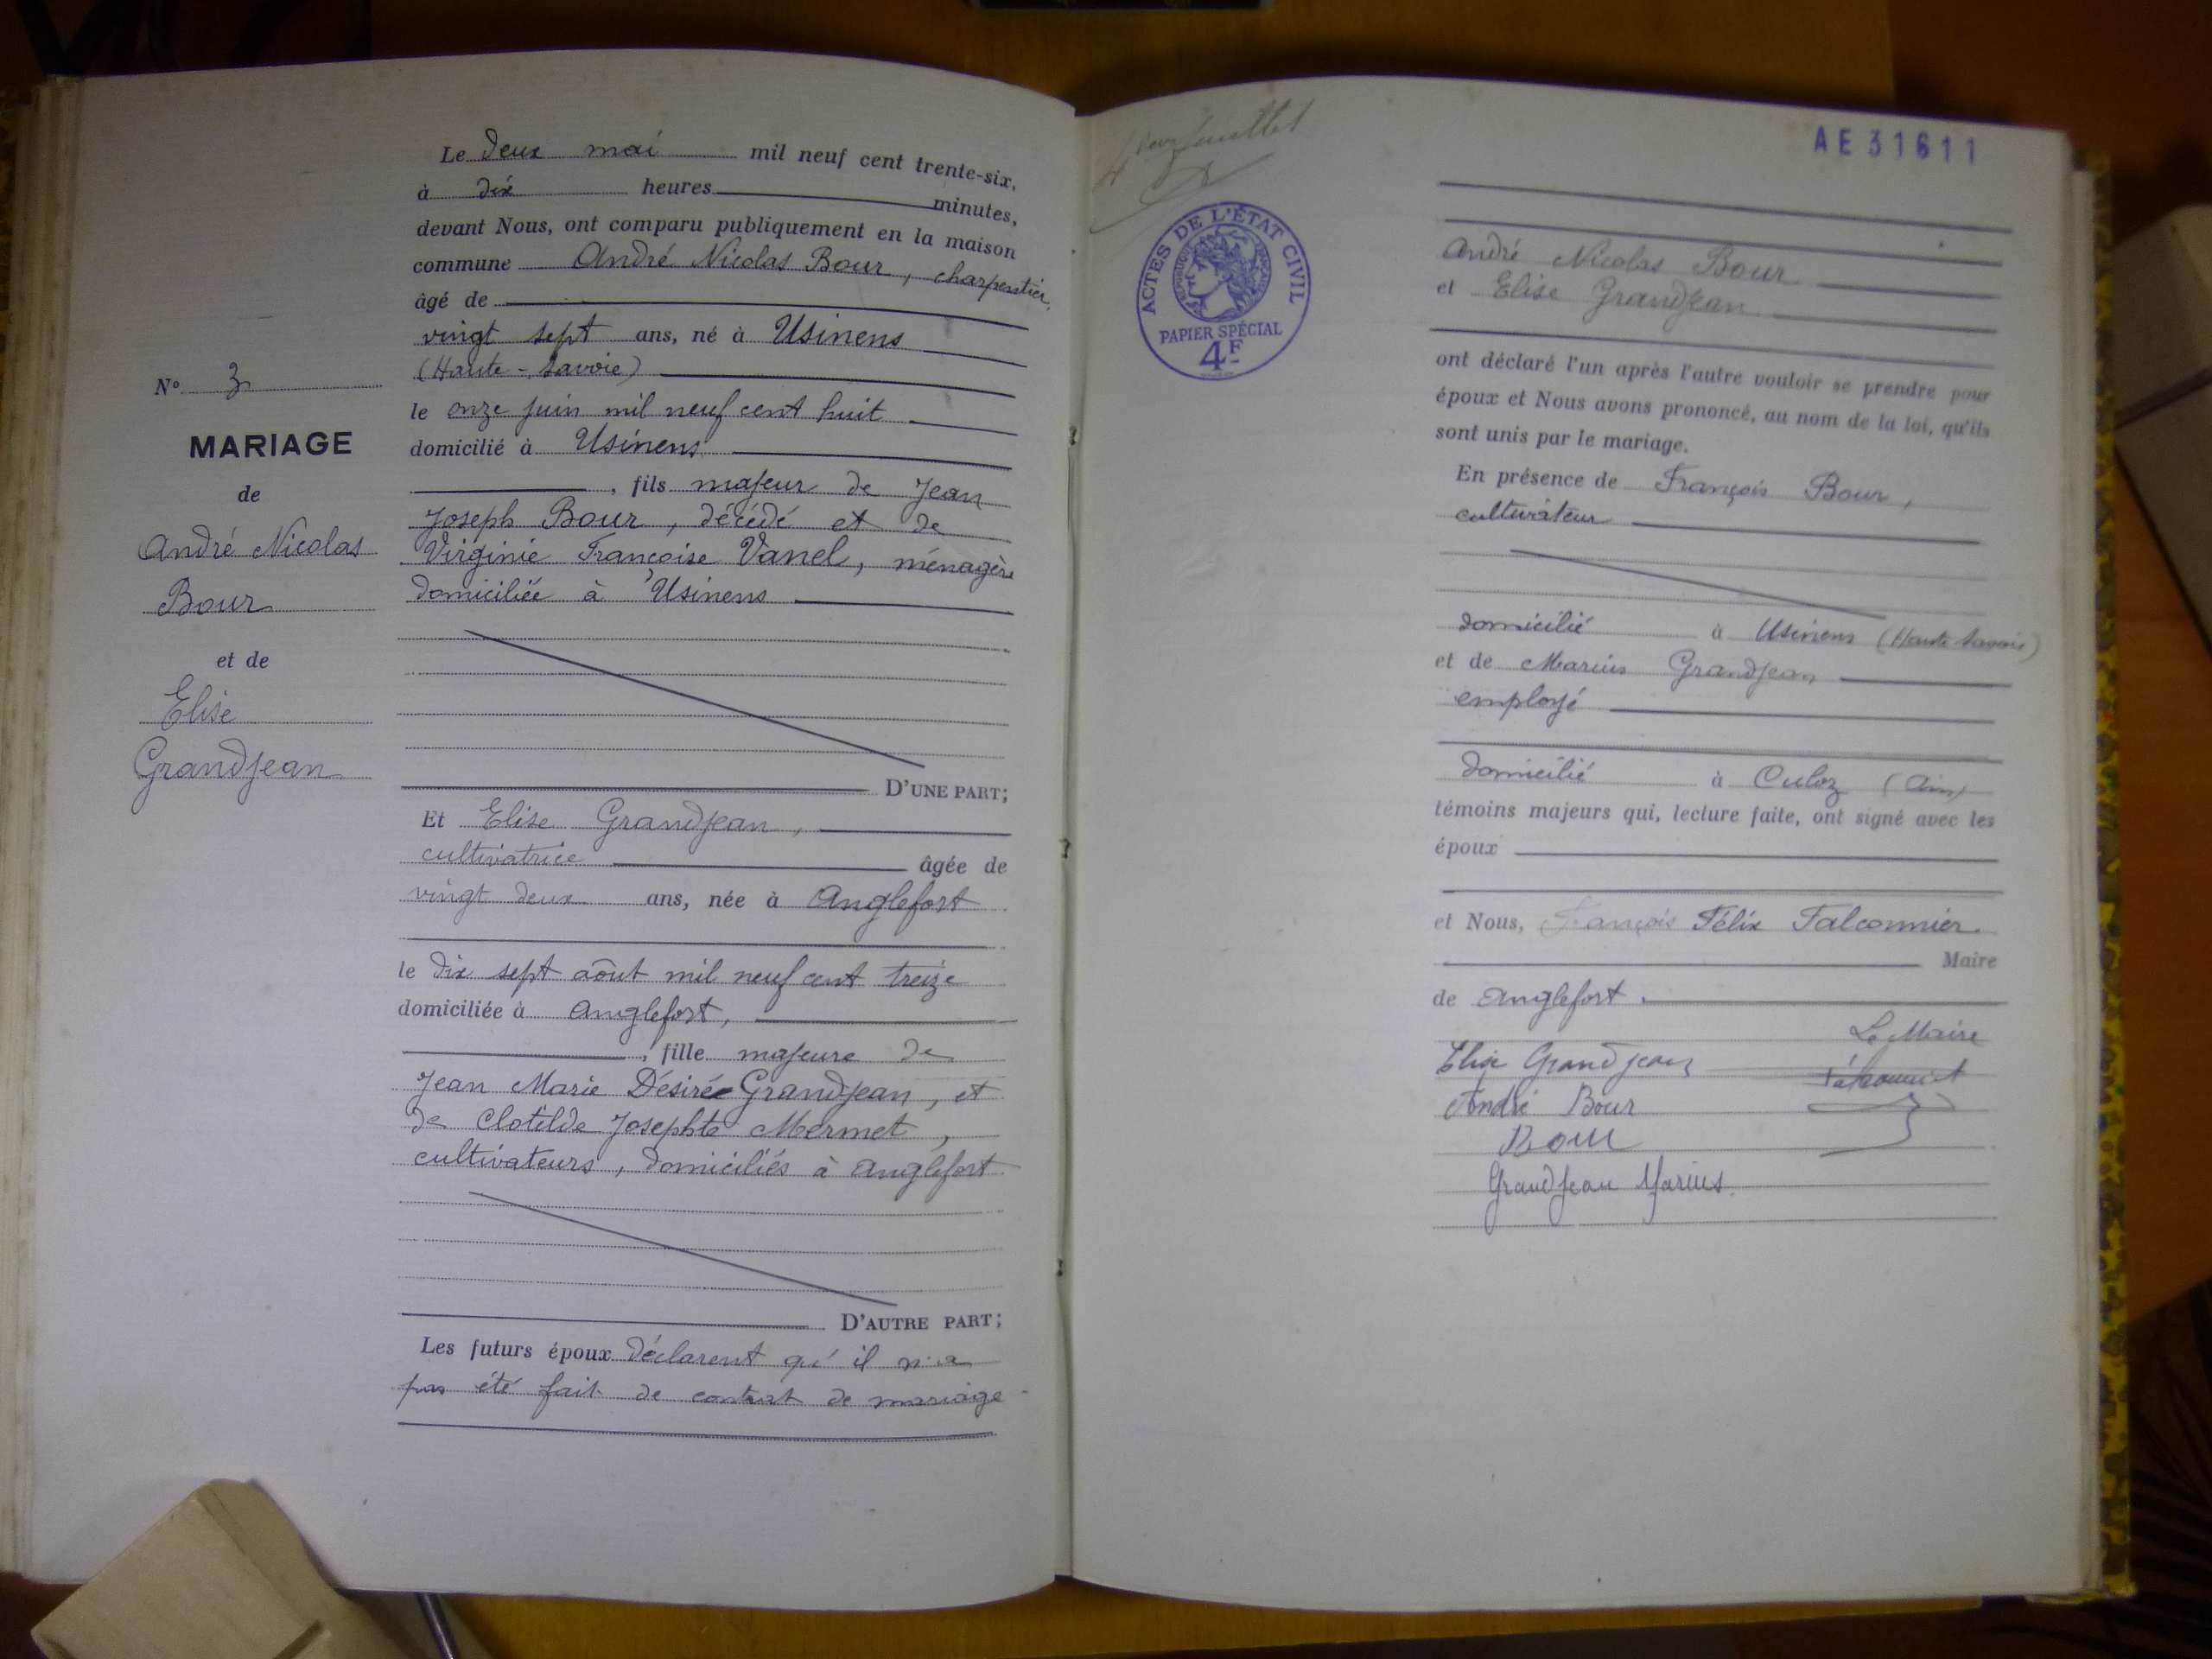 Le deux mai mil neuf cent trente-six,
à dix heures minutes,
devant Nous, ont comparu publiquement en la maison
commune André Nicolas Bour, charpentier,
âgé de
vingt sept ans, né à Usinens
(Haute-Savoie)
le onze juin mil neuf cent huit
domicilié à Usinens
, fils majeur de Jean
Joseph Bour, décédé et de
Virginie Françoise Vanel, ménagère
domiciliée à Usinens
D'UNE PART;
Et Elise Grandjean,
cultivatrice âgée de
vingt deux ans, née à Anglefort
le dix sept août mil neuf cent treize
domiciliée à Anglefort,
, fille majeure de
Jean Marie Désiré Grandjean, et
de Clotilde Josephte Mermet,
cultivateurs, domiciliés à Anglefort
D'AUTRE PART;
Les futurs époux déclarent qu'il n'a
pas été fait de contrat de mariage
N° 3
MARIAGE
de
André Nicolas
Bour
et de
Elise
Grandjean
feuillet
AE31611
ACTES DE L'ÉTAT CIVIL
PAPIER SPÉCIAL
4F
André Nicolas Bour
et Elise Grandjean
ont déclaré l'un après l'autre vouloir se prendre pour
époux et Nous avons prononcé, au nom de la loi, qu'ils
sont unis par le mariage.
En présence de François Bour,
cultivateur
domicilié à Usinens (Haute Savoie)
et de Marius Grandjean
employé
domicilié à Culoz (Ain)
témoins majeurs qui, lecture faite, ont signé avec les
époux
et Nous, François Félix Falconnier
Maire
de Anglefort.
Le Maire
Elise Grandjean
André Bour
Bour
Grandjean Marius